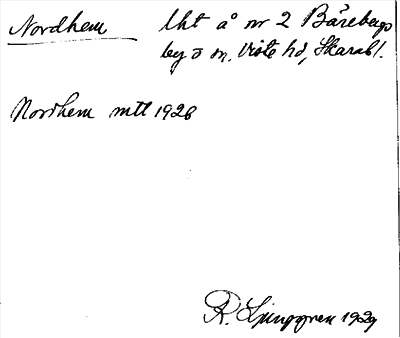 Nordhem lht å nr 2 Bårebergs
by o sn, Viste hd, Skarabl.
Nordhem mtl 1926
R. Ljunggren 1929